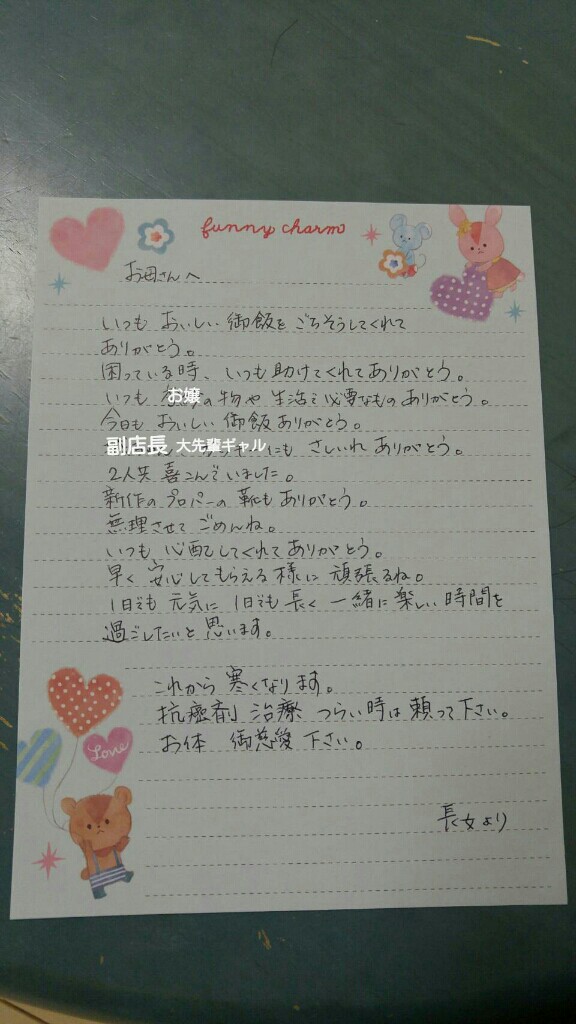 funny charm
お母さんへ
いつも おいしい 御飯を ごちそうしてくれて
ありがとう。
困っている時、いつも助けてくれてありがとう。
いつも お嬢の物や 生活で必要なものありがとう。
今日も おいしい 御飯ありがとう。
副店長 大先輩ギャルにも さしいれ ありがとう。
2人共 喜こんでいました。
新作の プロパーの 靴も ありがとう。
無理させて ごめんね。
いつも 心配してくれて ありがとう。
早く 安心してもらえる様に 頑張るね。
1日でも 元気に 1日でも 長く 一緒に 楽しい 時間を
過ごしたいと 思います。
これから 寒くなります。
抗癌剤 治療 つらい時は 頼って下さい。
お体 御慈愛 下さい。
Love
長女より